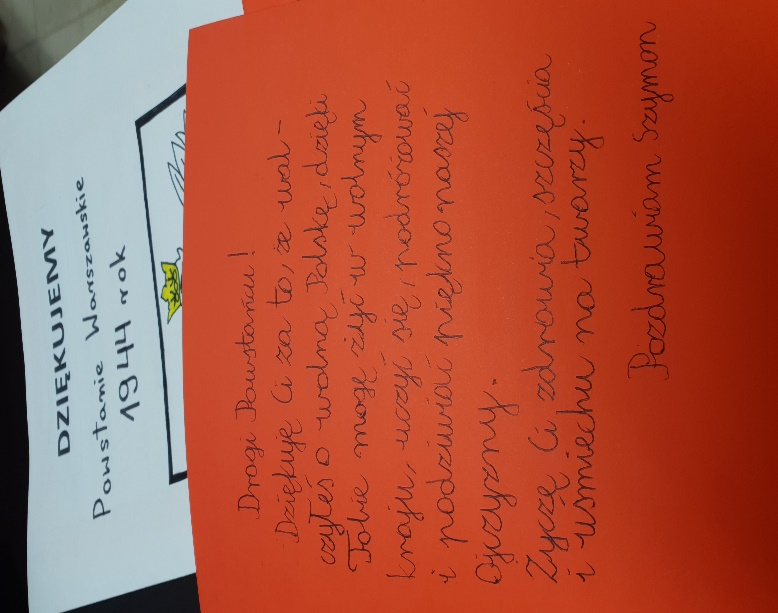 DZIĘKUJEMY
Powstanie Warszawskie
1944 rok
Drogi Powstańcu!
Dziękuję Ci za to, że wal-
czyłeś o wolną Polskę, dzięki
Tobie mogę żyć w wolnym
kraju, uczyć się, podróżować
i podziwiać piękno naszej
Ojczyzny.
Życzę Ci zdrowia, szczęścia
i uśmiechu na twarzy.
Pozdrawiam Szymon